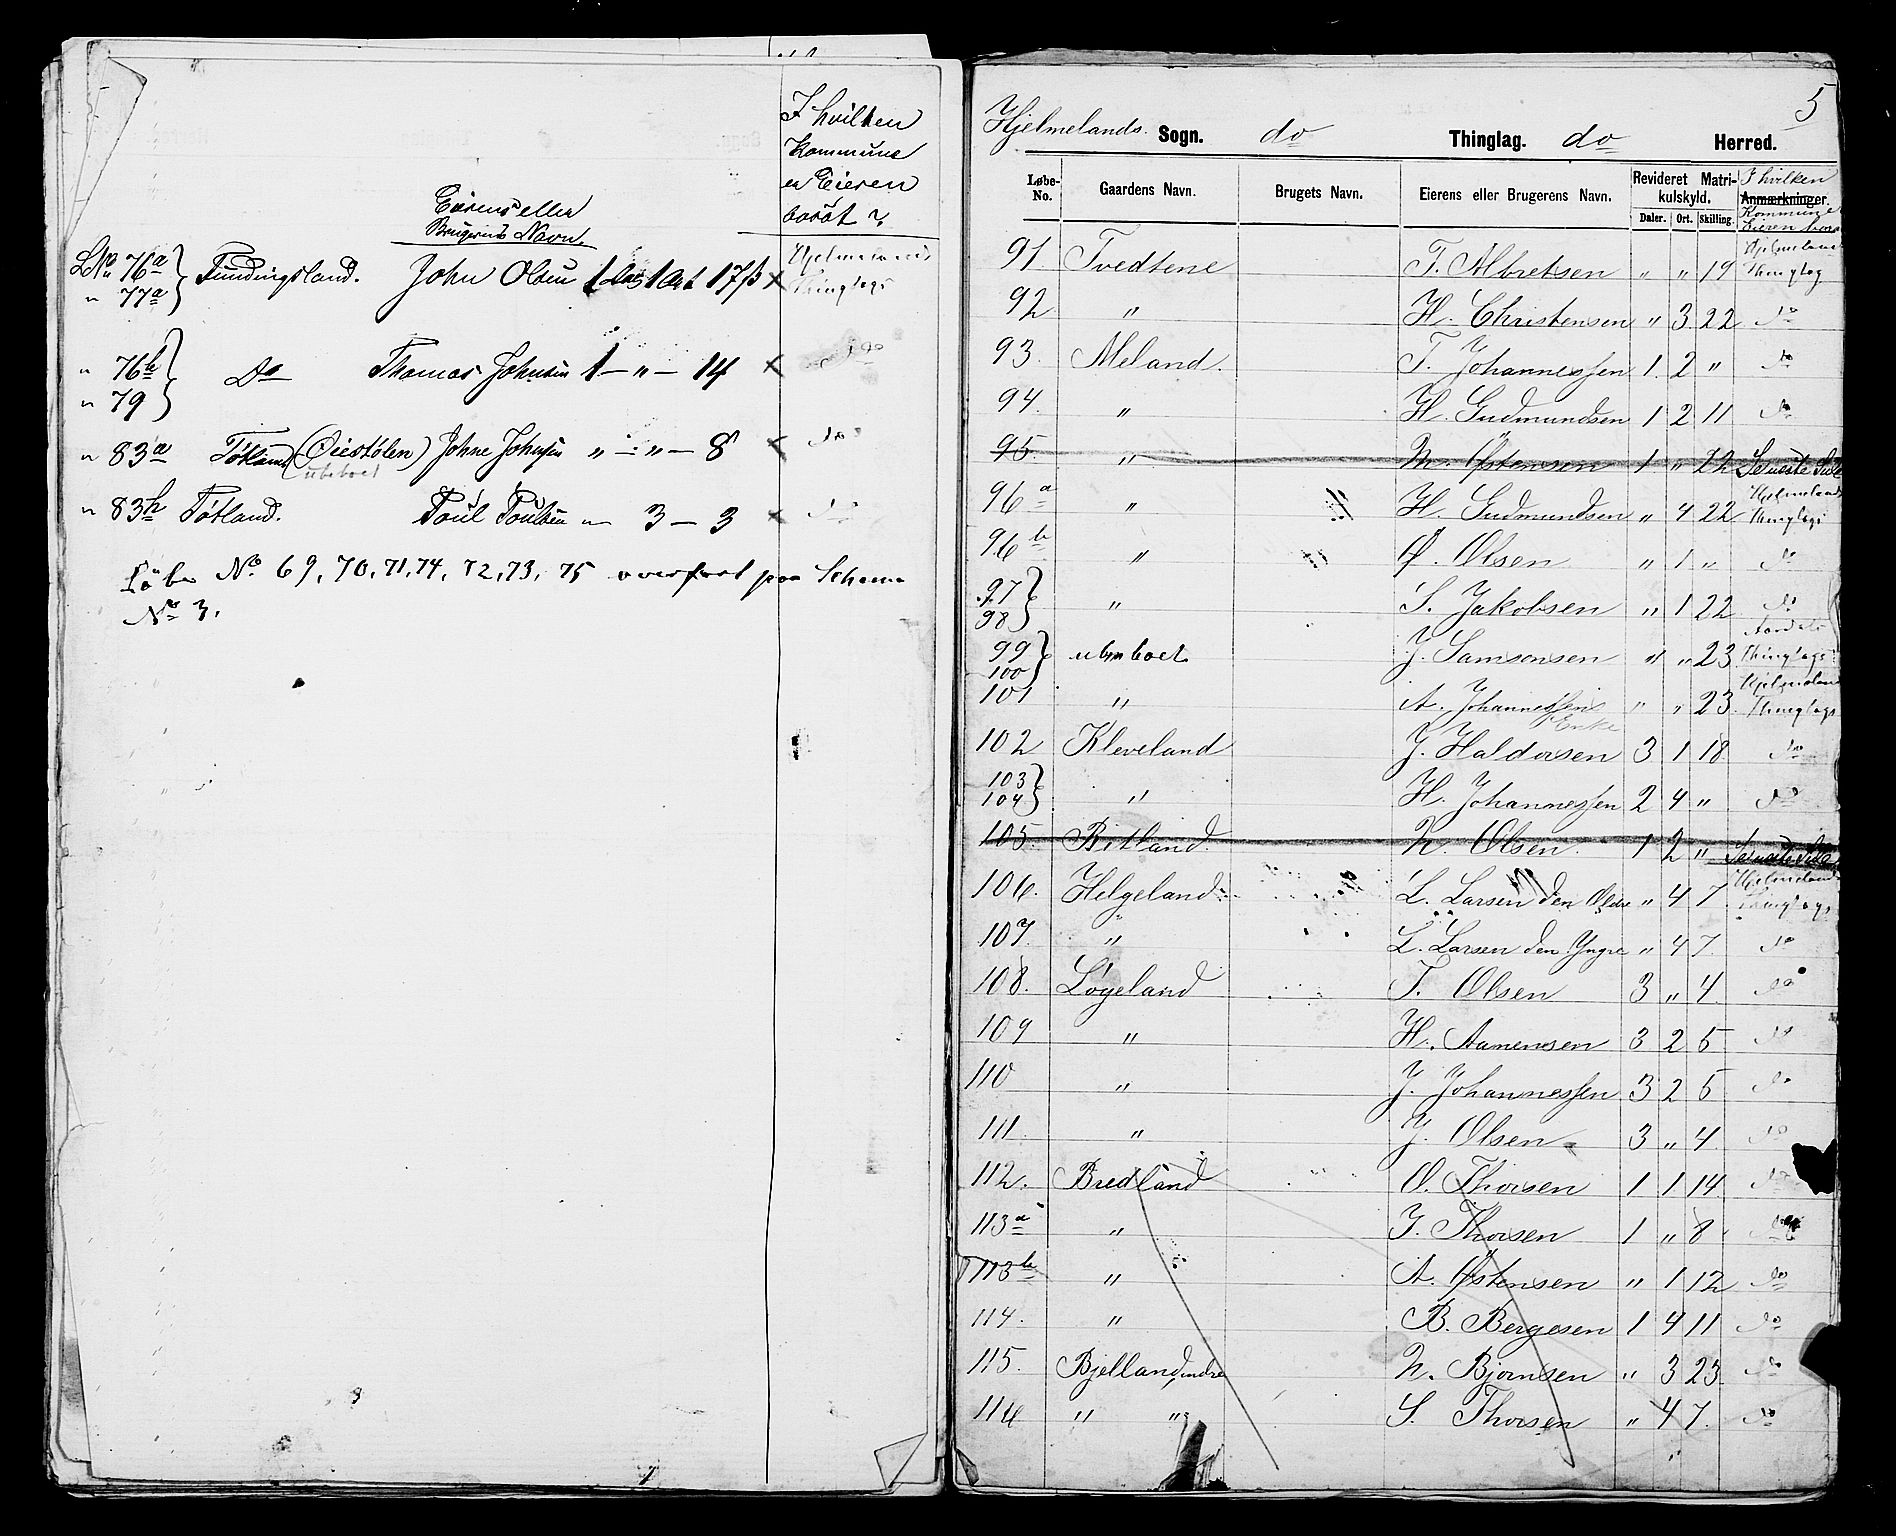 I hvilken
Kommune
er Eieren
bosat?
Eierens eller
Brugerens Navn.
LNo 76a } Fundingsland. John Olsen 1 Dal 1 Ort 17 β × Hjelmelands
" 77a Thinglags
" 76b } Do Thomas Johnsen 1 — " — 14 × Do
" 79
" 83a Tøtland (Öiestölen) Johne Johnsen " — " — 8 × Do
ubeboet
" 83b Tøtland. Poul Poulsen " 3 — 3 × Do
Löbe No. 69, 70, 71, 74, 72, 73, 75 overført paa Schema
No 3.
5
Hjelmelands Sogn. do Thinglag. do Herred.
Løbe-No. Gaardens Navn. Brugets Navn. Eierens eller Brugerens Navn. Revideret Matrikulskyld. Anmærkninger.
Daler. Ort. Skilling.
I hvilken
Kommune
Eieren bor
91 Tvedtene T. Albretsen " " 19 Hjelmeland Thinglag
92 " H. Christensen " 3 22 Do
93. Meland. T. Johannessen 1 2 " Do
94. " H. Gudmundsen 1 2 11 Do
95. " M. Østensen 1 " 22 Se næste Side
96 a " H. Gudmundsen " 4 22 Hjelmelands Thinglags
96 b " Ø. Olsen " 1 " Do
97 } 98 " S. Jakobsen " 1 22 Do
99 } 100 ubeboet J. Samsonsen " " 23 Aardals Thinglags
101 " A. Johannessens Enke " " 23 Hjelmeland Thinglags
102 Kleveland J. Haldorsen 3 1 18. Do
103 } 104 " H. Johannessen 2 4 " Do
105. Ritland. N. Olsen. 1 2 " Se næste Side
106. Helgeland L. Larsen den Ældre " 4 7 Hjelmelands Thinglags
107. " L. Larsen den Yngre " 4 7. Do
108. Løgeland T. Olsen 3 " 4. Do
109 " H. Aamensen 3 2 5 Do
110 " J. Johannessen 3 2 5 Do
111. " J. Olsen 3 " 4. Do
112. Bredland O. Thorsen 1 1 14 Do
113 a " J. Thorsen 1 " 8 Do
113 b " A. Østensen " 1 12 Do
114. " B. Bergesen 1 4 11 Do
115. Bjelland, indre N. Bjørnsen " 3 23 Do
116 " " S. Thorsen " 4 7. Do